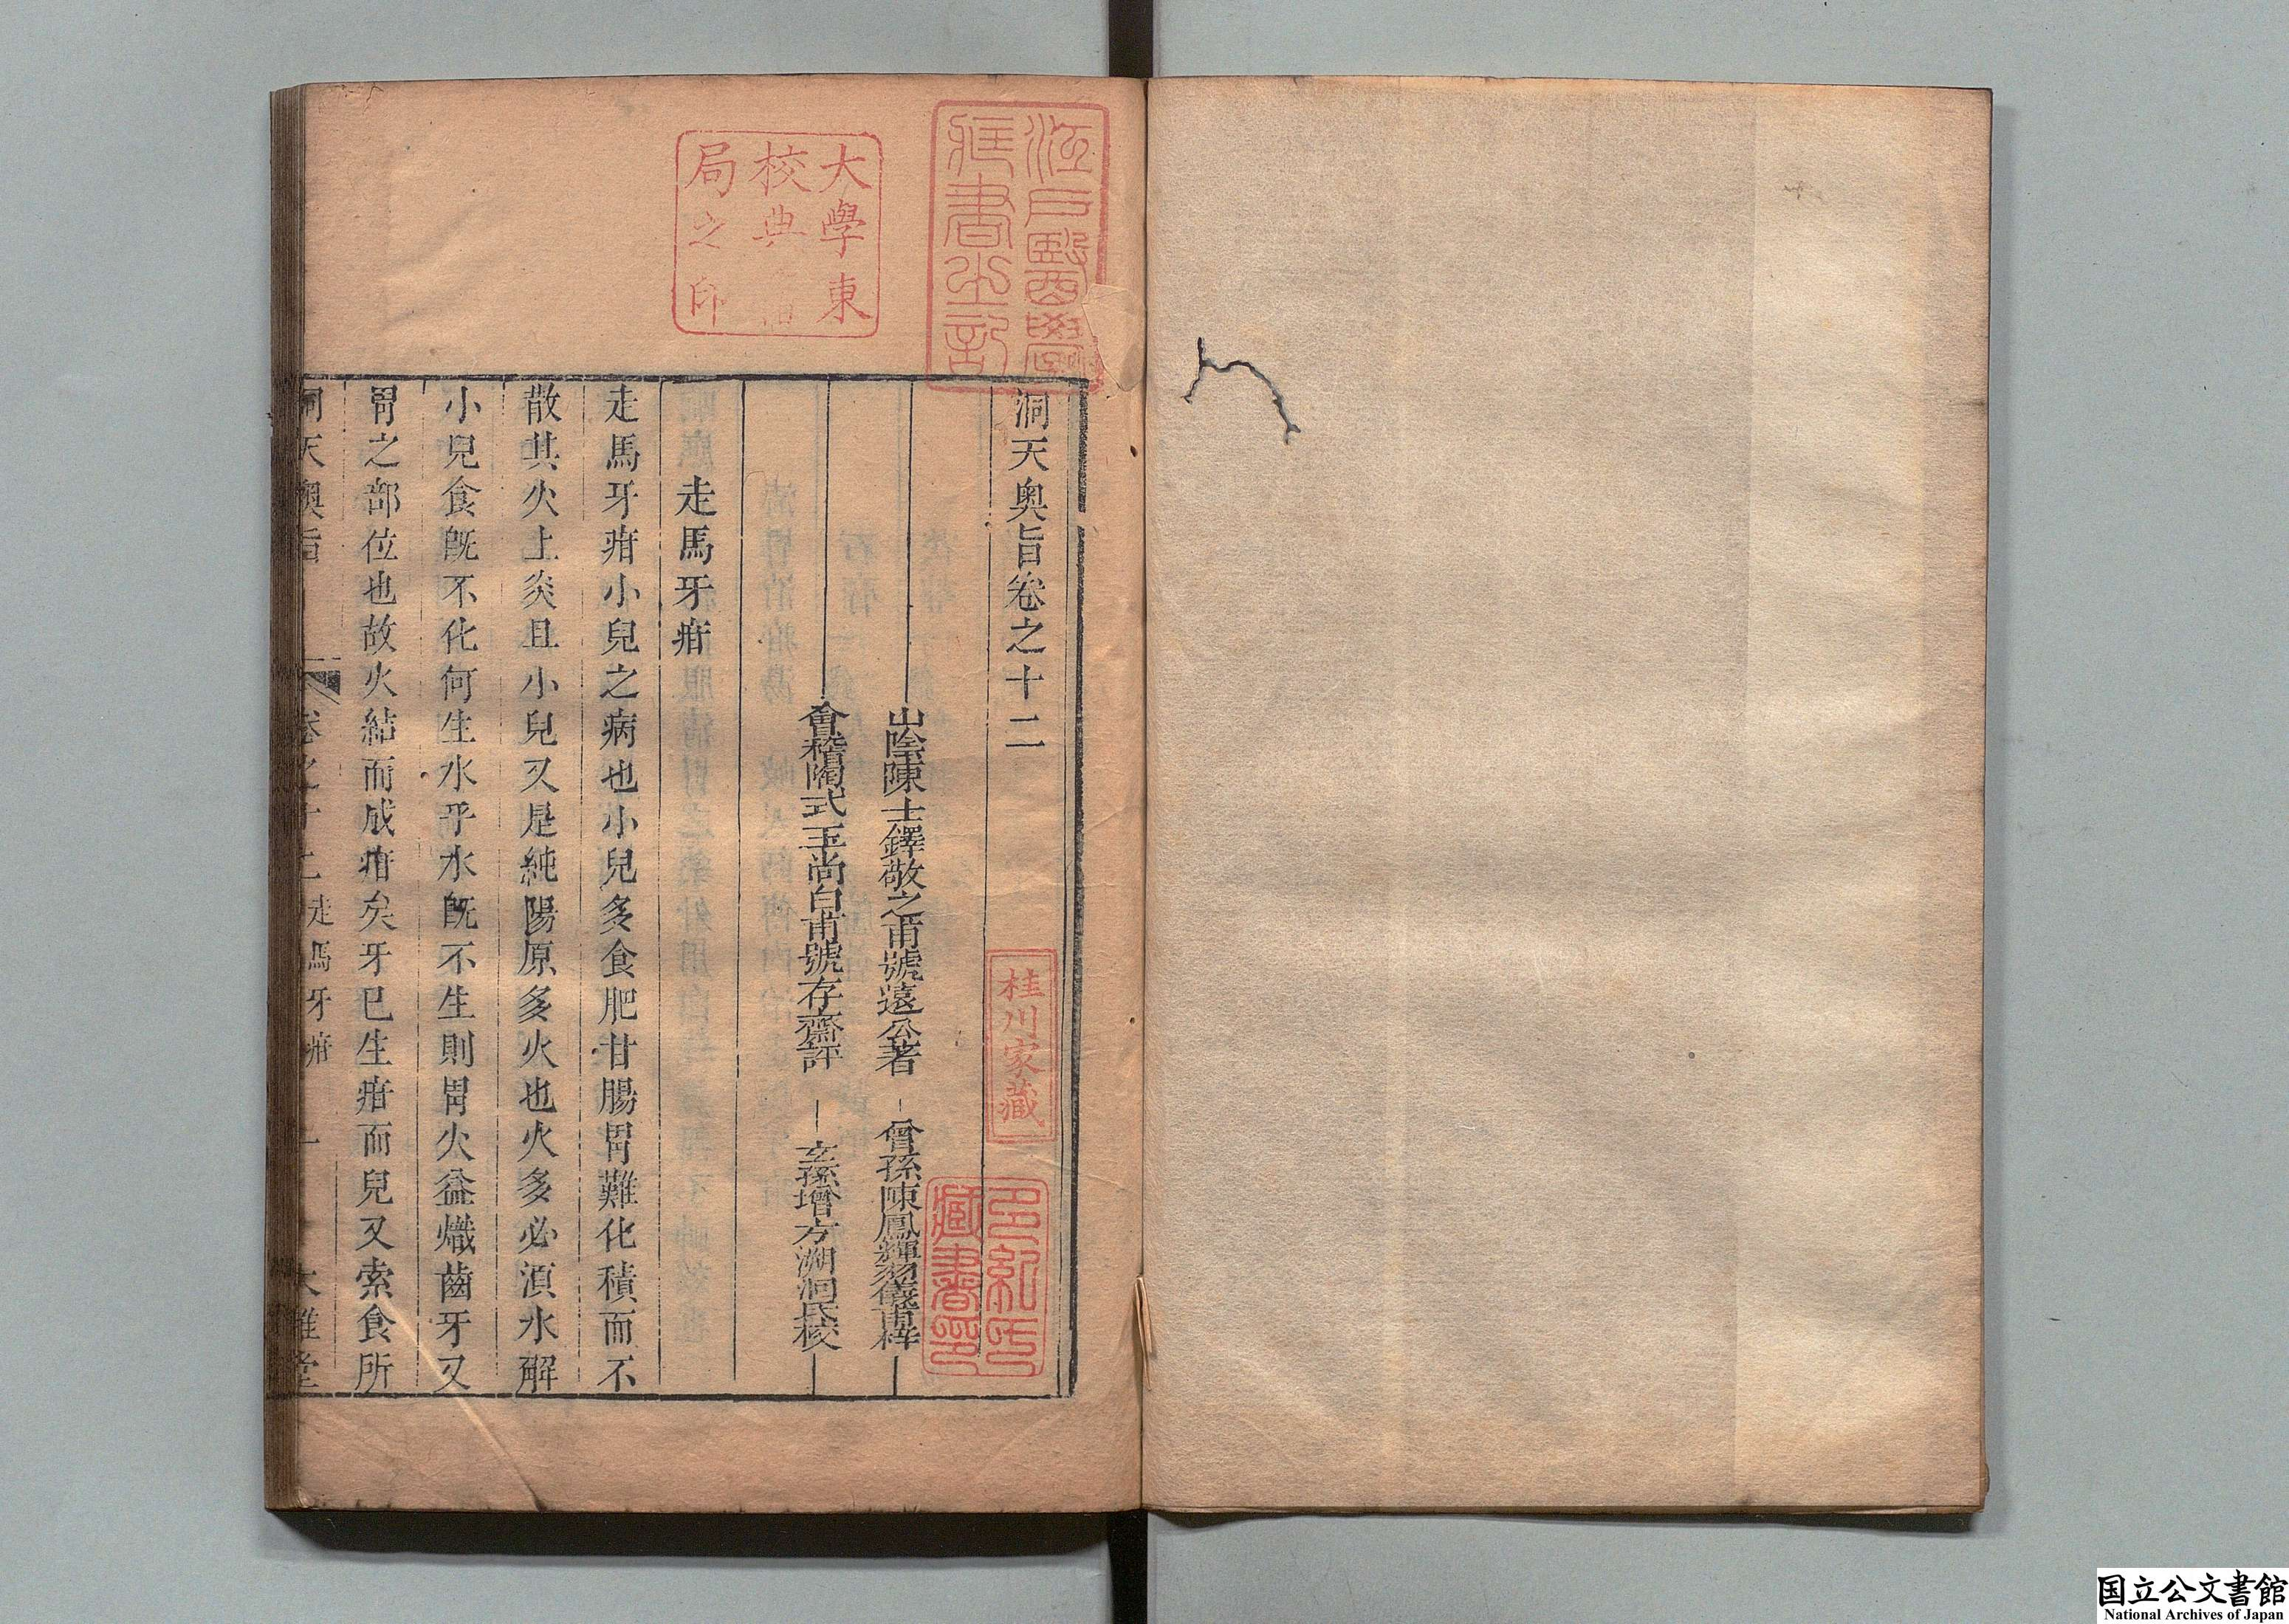 洞天奧旨卷之十二
山陰陳士鐸敬之甫號遠公著
曾孫陳鳳輝羽儀甫梓
會稽陶式玉尚白甫號存齋評
玄孫增方溯洄氏校
走馬牙疳
走馬牙疳小兒之病也小兒多食肥甘腸胃難化積而不
散其火上炎且小兒又是純陽原多火也火多必湏水解
小兒食旣不化何生水乎水旣不生則胃火益熾齒牙又
胃之部位也故火結而成疳矣牙已生疳而兒又索食所
洞天奧旨 卷之十二 走馬牙疳 一 大雅堂
江戸醫學
藏書之記
大學東
校典
局之印
桂川家藏
多紀氏
藏書印
国立公文書館
National Archives of Japan